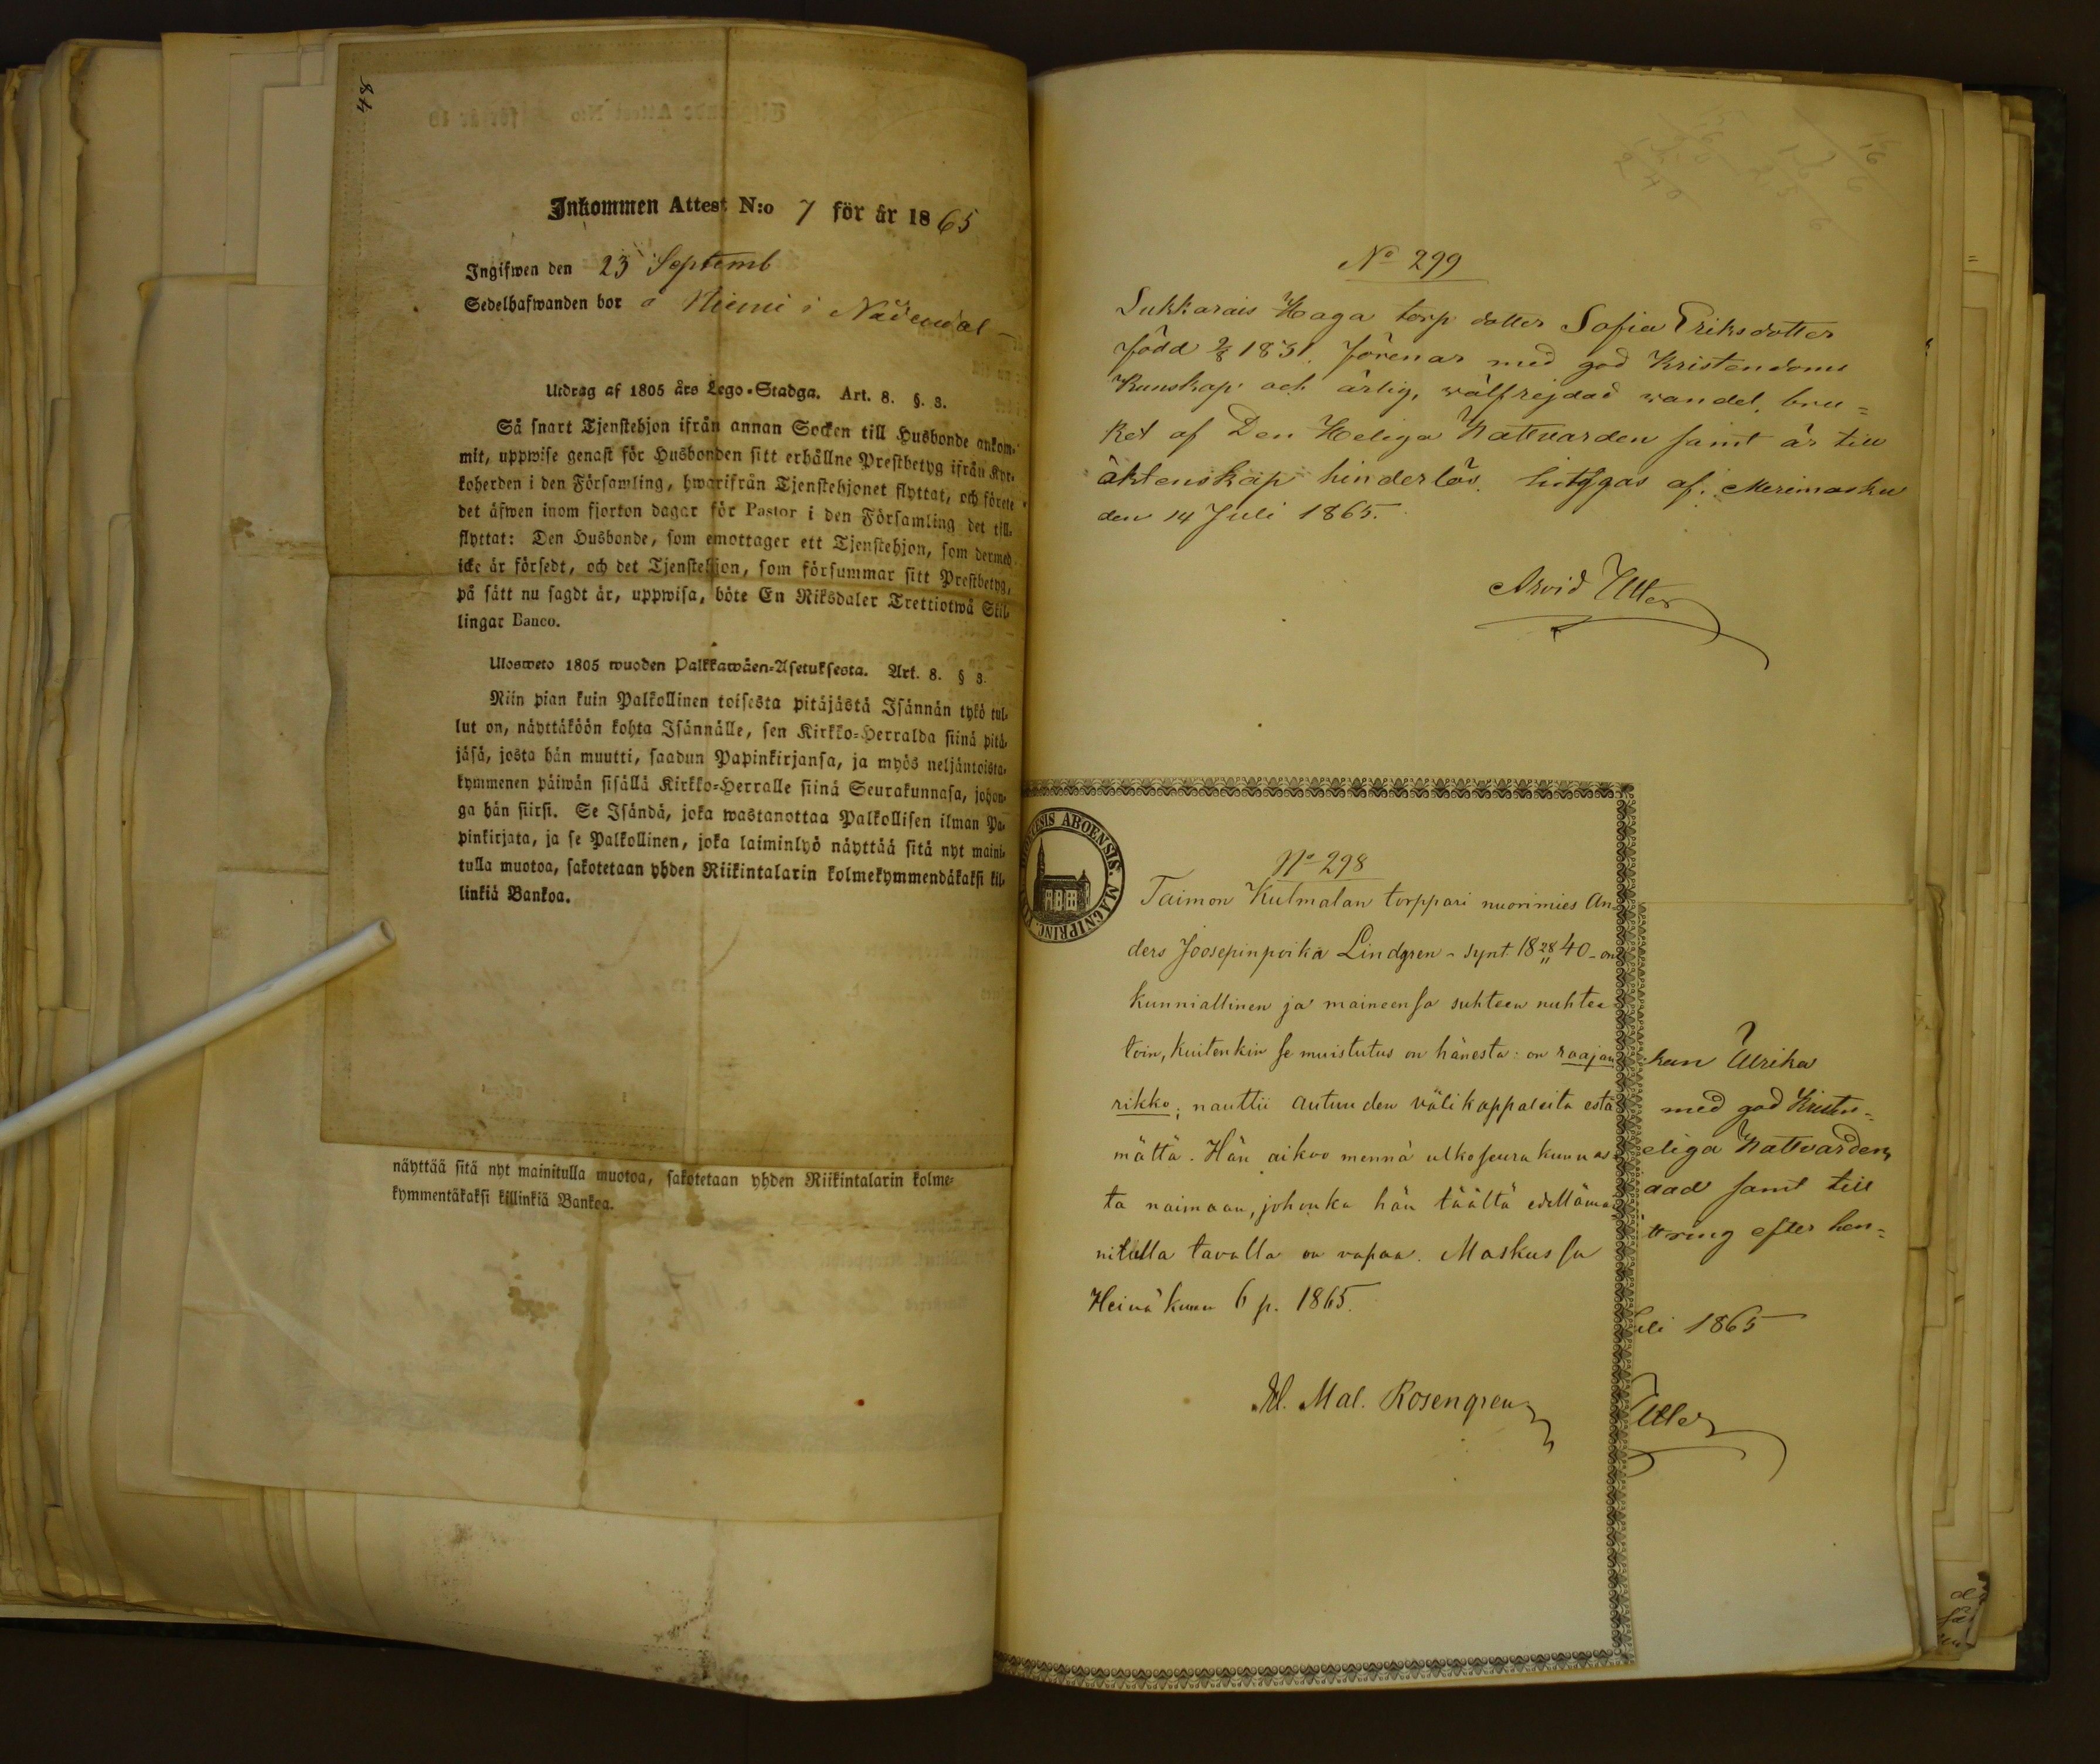 84
Inkommen Attest N:o 7 för år 1865
Ingifwen den 23 Septemb
Sedelhafwanden bor å Niemi i Nådendal
Utdrag af 1805 års Lego-Stadga. Art. 8. §. 3.
Så snart Tjenstehjon ifrån annan Socken till Husbonde ankom-
mit, uppwise genast för Husbonden sitt erhållne Prestbetyg ifrån Kyr-
koherden i den Församling, hwarifrån Tjenstehjonet flyttat, och förete
det äfwen inom fjorton dagar för Pastor i den Församling det till-
flyttat: Den Husbonde, som emottager ett Tjenstehjon, som dermed
icke är försedt, och det Tjenstehjon, som försummar sitt Prestbetyg,
på sätt nu sagdt är, uppwisa, böte En Riksdaler Trettiotwå Skil-
lingar Banco.
Ulosweto 1805 wuoden Palkkawäen-Asetuksesta. Art. 8. § 3.
Niin pian kuin Palkollinen toisesta pitäjästä Isännän tykö tul-
lut on, näyttäköön kohta Isännälle, sen Kirkko-Herralda siinä pitä-
jäsä, josta hän muutti, saadun Papinkirjansa, ja myös neljäntoista-
kymmenen päiwän sisällä Kirkko-Herralle siinä Seurakunnasa, johon-
ga hän siirsi. Se Isändä, joka wastanottaa Palkollisen ilman Pa-
pinkirjata, ja se Palkollinen, joka laiminlyö näyttää sitä nyt maini-
tulla muotoa, sakotetaan yhden Riikintalarin kolmekymmendäkaksi kil-
linkiä Bankoa.
näyttää sitä nyt mainitulla muotoa, sakotetaan yhden Riikintalarin kolme-
kymmentäkaksi killinkiä Bankoa.
No 299
Lukkarais Haga torp dotter Sofia Eriksdotter
född 2/8 1831. förenar med god Kristendoms
Kunskap och ärlig, wälfrejdad wandel, bru=
ket af Den Heliga Nattvarden samt är till
äktenskap hinderlös. af: Merimasku
den 14 Juli 1865.
Arvid Utter
DIOECESIS ABOENSIS. MAGNI PRINC.
No 298
Taimon Kulmalan torppari nuorimies An-
ders Joosepinpoika Lindgren - synt. 18 28/11 40 - on
kunniallinen ja maineensa suhteen nuhtee-
toin, kuitenkin se muistutus on hänestä: on raajan
rikko; nauttii autuuden välikappaleita estä-
mättä. Hän aikoo mennä ulkoseurakunnas-
ta naimaan, johonka hän täältä edellämai-
nitulla tavalla on vapaa. Maskussa
Heinäkuun 6 p. 1865.
Kl. Mal. Rosengren
kan Ulrika
med god Kristen=
eliga Nattvarden,
dad samt till
ttring efter hen=
uli 1865
Utter